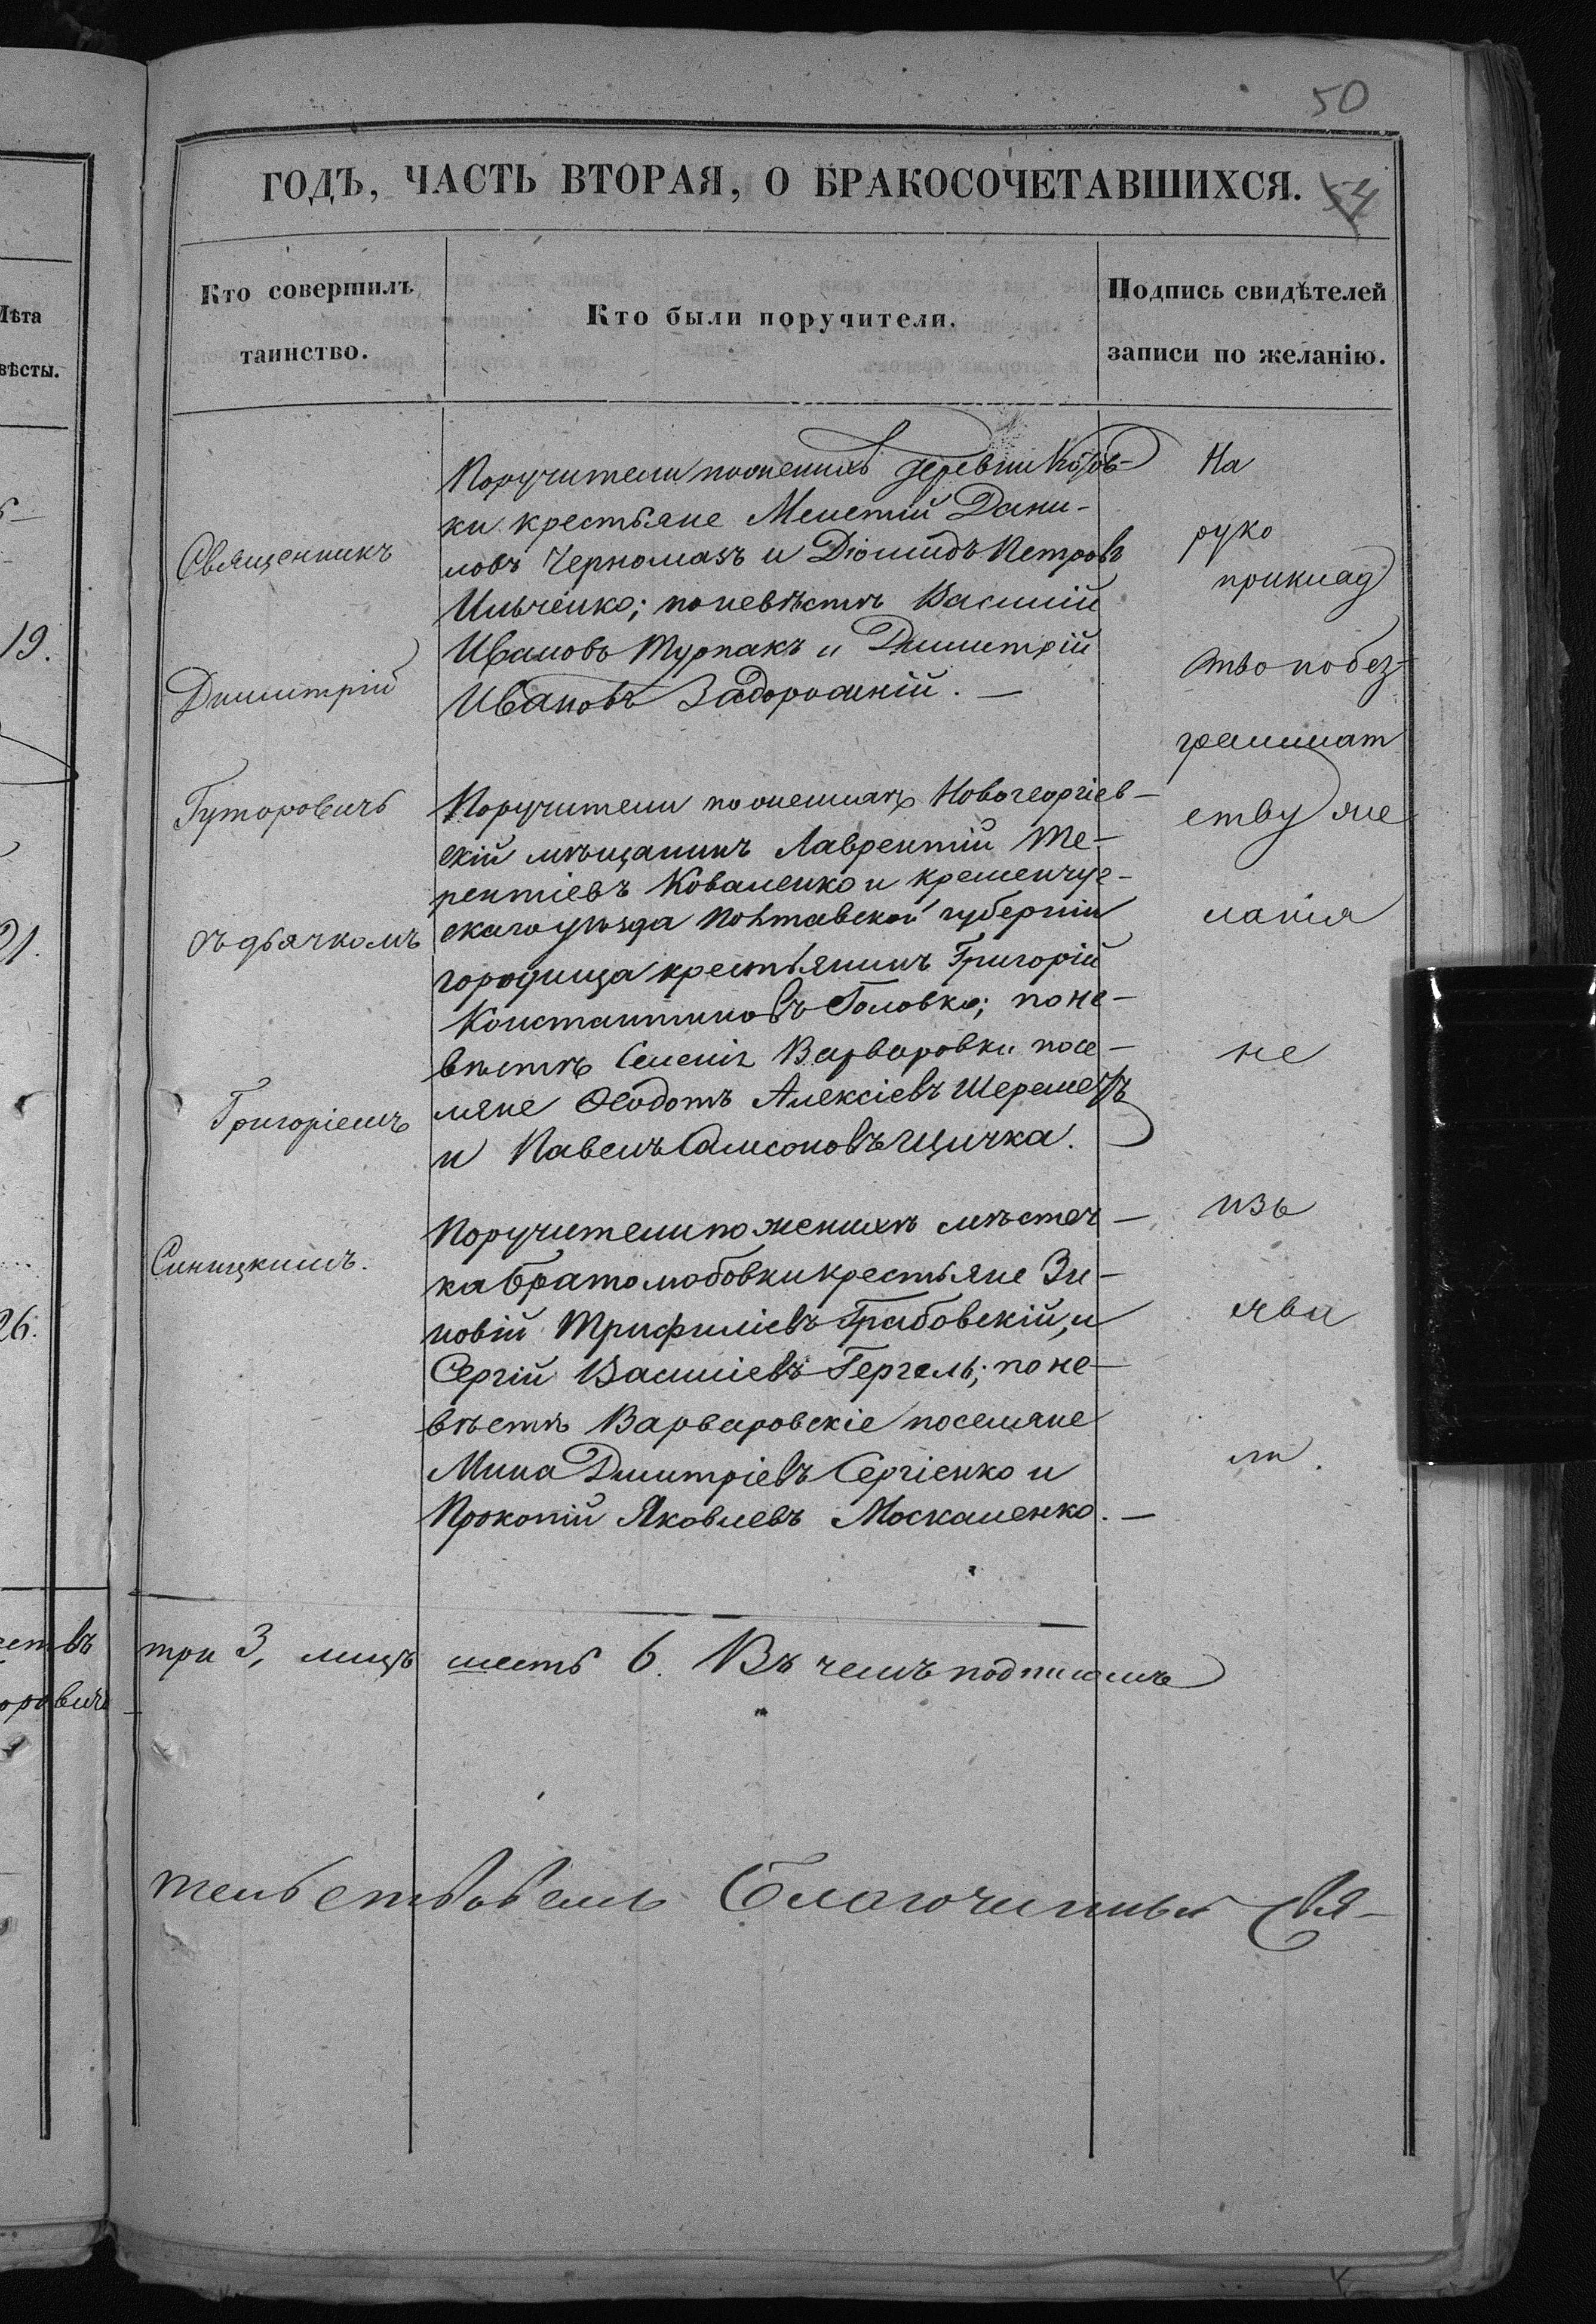 50
ГОДЪ, ЧАСТЬ ВТОРАЯ, О БРАКОСОЧЕТАВШИХСЯ.
54
Лѣта
вѣсты.
Кто совершилъ
таинство.
Кто были поручители.
Подпись свидѣтелей
записи по желанію.
19.
21.
26.
Священникъ
Димитрій
Гуторовичъ
съ дьячкомъ
Григоріемъ
Синицкимъ.
Поручители по женихѣ деревни
ки крестьяне Мелетій Дани-
ловъ Черномазъ и Діомидъ Петровъ
Ильченко; по невѣстѣ Василій
Ивановъ Турпакъ и Димитрій
Ивановъ Задорожній. —
Поручители по женихѣ Новогеоргіев-
скій мѣщанинъ Лаврентій Те-
рентіевъ Коваленко и кременчуг-
скаго уѣзда Полтавской губерніи
городища крестьянинъ Григорій
Константиновъ Головко; по не-
вѣстѣ Селенія Варваровки посе-
ляне Ѳеодотъ Алексіевъ Шереметъ
и Павелъ Самсоновъ Щичка.
Поручители по женихѣ мѣстеч-
ка Братолюбовки крестьяне Зи-
новій Трифиліевъ Грабовскій, и
Сергій Василіевъ Гергель; по не-
вѣстѣ Варваровскіе поселяне
Мина Димитріевъ Сергіенко и
Прокопій Яковлевъ Москаленко. —
На
руко
приклад
ство по без-
граммат
ству же
ланія
не
изъ
яви
ли.
ствъ
оровичъ
три 3, лицъ шесть 6. Въ чемъ подписомъ
тельствовалъ Благочинный Свя-